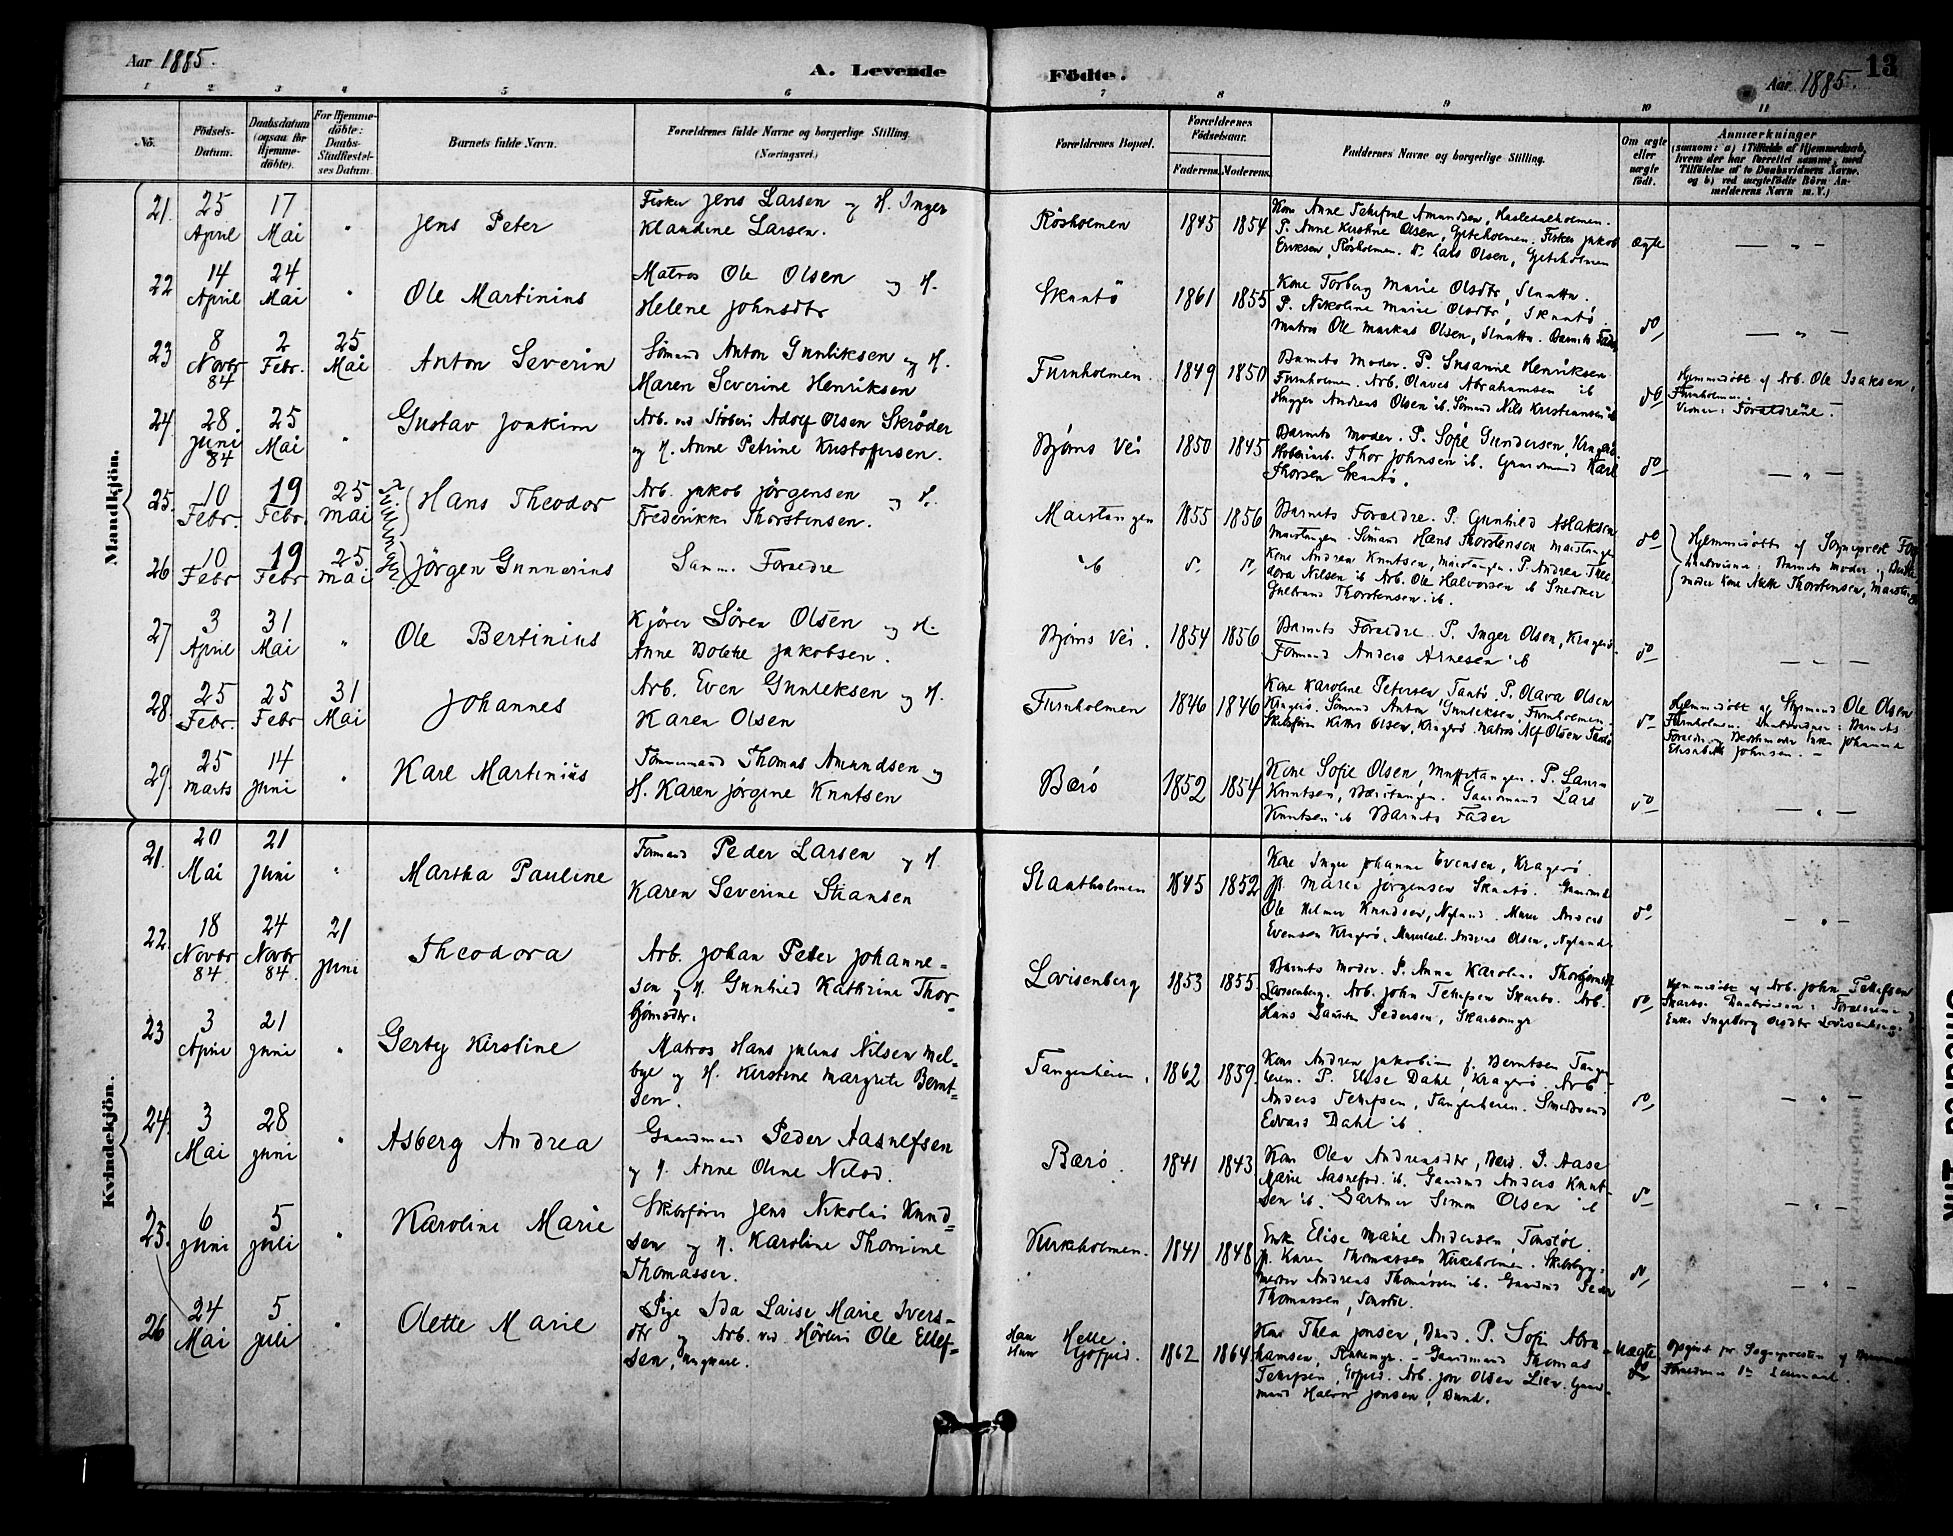 Aar 1885.
A. Levende
Födte.
Aar 1885.
13
1 2 3 4 5 6 7 8 9 10 11
No.
Födsels-
Datum.
Daabsdatum
(ogsaa for
Hjemme-
döbte).
For Hjemme-
döbte:
Daabs-
Stadfæstel-
ses Datum.
Barnets fulde Navn.
Forældrenes fulde Navne og borgerlige Stilling.
(Næringsvei.)
Forældrenes Bopæl.
Forældrenes
Födselsaar.
Faderens.
Moderens.
Faddernes Navne og borgerlige Stilling.
Om ægte
eller
uægte
födt.
Anmærkninger
(saasom: a) i Tilfælde af Hjemmedaab,
hvem der har forrettet samme, med
Tilföielse af to Daabsvidners Navne,
og b) ved uægtefödte Börn An-
melderens Navn m. V.)
Mandkjön.
21. 25 April 17 Mai " Jens Peter
Fisker Jens Larsen og H. Inger
Klaudine Larsen.
Rösholmen 1845 1854
Kone Anne Amundsen,
P. Anne Kirstine Olsen, Gjeteholmen. Fisker Jakob
Eriksen, Rösholmen. Lars Olsen, Gjeteholmen
ægte — " —
22 14 April 24 Mai " Ole Martinius
Matros Ole Olsen og H.
Helene Johnsdtr
Skaatö 1861 1855
Kone Torborg Marie Olsdtr,
P. Nikoline Marie Olsdtr, Skaatö
Matros Ole Markus Olsen, Barnets Fader
do — " —
23 8 Novbr 84 2 Febr. 25 Mai Anton Severin
Sömand Anton Gunliksen og H.
Maren Severine Henriksen
Furuholmen. 1849 1850
Barnets Moder. P. Susanne Henriksen
Furuholmen. Arb. Olaves Abrahamsen ib
Andreas Olsen ib. Sömand Nils Kristiansen ib
do
Hjemmedöbt af Arb. Ole Isaksen,
Furuholmen.
Vidner: Forældrene.
24. 28. Juni 84 25 Mai " Gustav Joakim
Arb. ved Stöberi Adolf Olsen Skröder
og H. Anne Petrine Kristoffersen.
Bjørns Vei 1850 1845
Barnets Moder. P. Sofie Gundersen, Kragerö.
Thor Johnsen ib. Gaardmand Karl
Thorsen Skaatö.
do — " —
25. 10 Febr. 19 Febr. 25 Mai Tvillinger Hans Theodor
Arb. Jakob Jörgensen og H.
Frederikke Thorstensen.
Maistangen 1855 1856
Barnets Forældre. P. Gunhild Aslaksen
Maistangen. Sömand Hans Thorstensen Maistangen
do
26 10 Febr 19 Febr 25. Mai Jörgen Gunnerius
Samme Forældre
ib do do
Kone Andrea Knutsen, Maistangen. P. Andrea Theo-
dora Nilsen ib Arb. Ole Halvorsen ib Snedker
Gulbrand Thorstensen ib.
Hjemmedöbte af Sogneprest
Daabsvidner: Barnets Moder og
moder Kone Thorstensen,
27 3 April 31 Mai " Ole Bertinius
Kjörer Sören Olsen og H.
Anne Dolethe Jakobsen.
Bjørns Vei. 1854 1856
Barnets Forældre. P. Inger Olsen, Kragerö.
Formand Anders Arnesen ib
do — " —
28. 25 Febr. 25 Febr 31 Mai Johannes
Arb. Even Gunleksen og H.
Karen Olsen
Furuholmen 1846 1846
Kone Karoline Petersen, Tantö. P. Olava Olsen
Kragerö. Sömand Anton Gunleksen, Furuholmen.
Skibsförer Olsen, Kragerö. Matros Alf Olsen Tantö
do
Hjemmedöbt af Styrmand Ole Olsen
Furuholmen. Daabsvidner: Barnets
Forældre og Bestemoder Enke Johanne
Elisabeth Johnsen.
29. 25 Marts 14 Juni " Karl Martinius
Tömmermand Thomas Amundsen og
H. Karen Jörgine Knutsen
Bærö 1852 1854
Kone Sofie Olsen, P. Laura
Knutsen, Gaardmand Lars
Knutsen ib Barnets Fader
do — " —
Kvindekjön.
21. 20 Mai 21 Juni " Martha Pauline
Formand Peder Larsen og H.
Karen Severine Stiansen
Slaatholmen 1845 1852
Kone Inger Johanne Evensen, Kragerö.
P. Maren Jörgensen Skaatö. Gaardmd
Ole Hilmer Knudsen, Nylund. Murer Anders
Evensen Kragerö. Andreas Olsen, Nylund
do — " —
22. 18 Novbr 84 24 Novbr 84. 21 Juni Theodora
Arb. Johan Peter Johanne-
sen og H. Gunhild Kathrine Thor-
bjørnsdtr.
Lovisenberg 1853 1855.
Barnets Moder. P. Anna Karoline Thorbjørnsdtr
Lovisenberg. Arb. John Tellefsen Skarbo. Arb.
Hans Pedersen, Skarbomyr
do
Hjemmedöbt af Arb. John Tellefsen
Skarbo. Daabsvidner: Forældrene og
Enke Ingeborg Olsdtr Lovisenberg.
23 3 April 21 Juni " Gerby Kirstine
Matros Hans Julius Nilsen Mel-
bye og H. Kirstine Margrete Bernt-
sen.
Tangenheien, 1862 1859.
Kone Andrea Jakobine f. Berntsen Tangen-
heien. P. Elise Dahl, Kragerö. Arb
Anders Tellefsen, Tangenheien. Smedsvend
Edvard Dahl ib.
do — " —
24. 3 Mai 28 Juni " Asberg Andrea
Gaardmand Peder Aasnefsen
og H. Anne Oline Nilsd.
Bærö. 1841 1843
Kone Olea Andreasdtr, P. Aase
Marie Aasnefsd. ib. Gaardmd Anders Knut-
sen ib. Gartner Simon Olsen ib
do — " —
25. 6 Juni 5 Juli " Karoline Marie
Skibsförer Jens Nikolai Knud-
sen og H. Karoline Thomine
Thomassen.
Kirkeholmen. 1841 1848
Enke Elise Marie Andersen,
P. Karen Thomassen Kirkeholmen. Skibsbyg-
mester Andreas Thomassen ib. Gaardmd Peder
Thomassen,
do — " —
26 24 Mai 5 Juli " Olette Marie
Pige Ida Laise Marie Ivers-
dtr og Arb. ved Hövleri Ole Ellef-
sen, ungkarl.
Han Helle.
Hun Gofjeld. 1862 1864
Kone Thea Jensen, P. Sofie Abra-
hamsen, Gaardmand Thomas
Tellefsen, Gofjeld. Arb. Jon Olsen Lien. Gaard-
mand Halvor Jensen,
Uægte
do
Opgivet for Sognepresten af
Forældrene